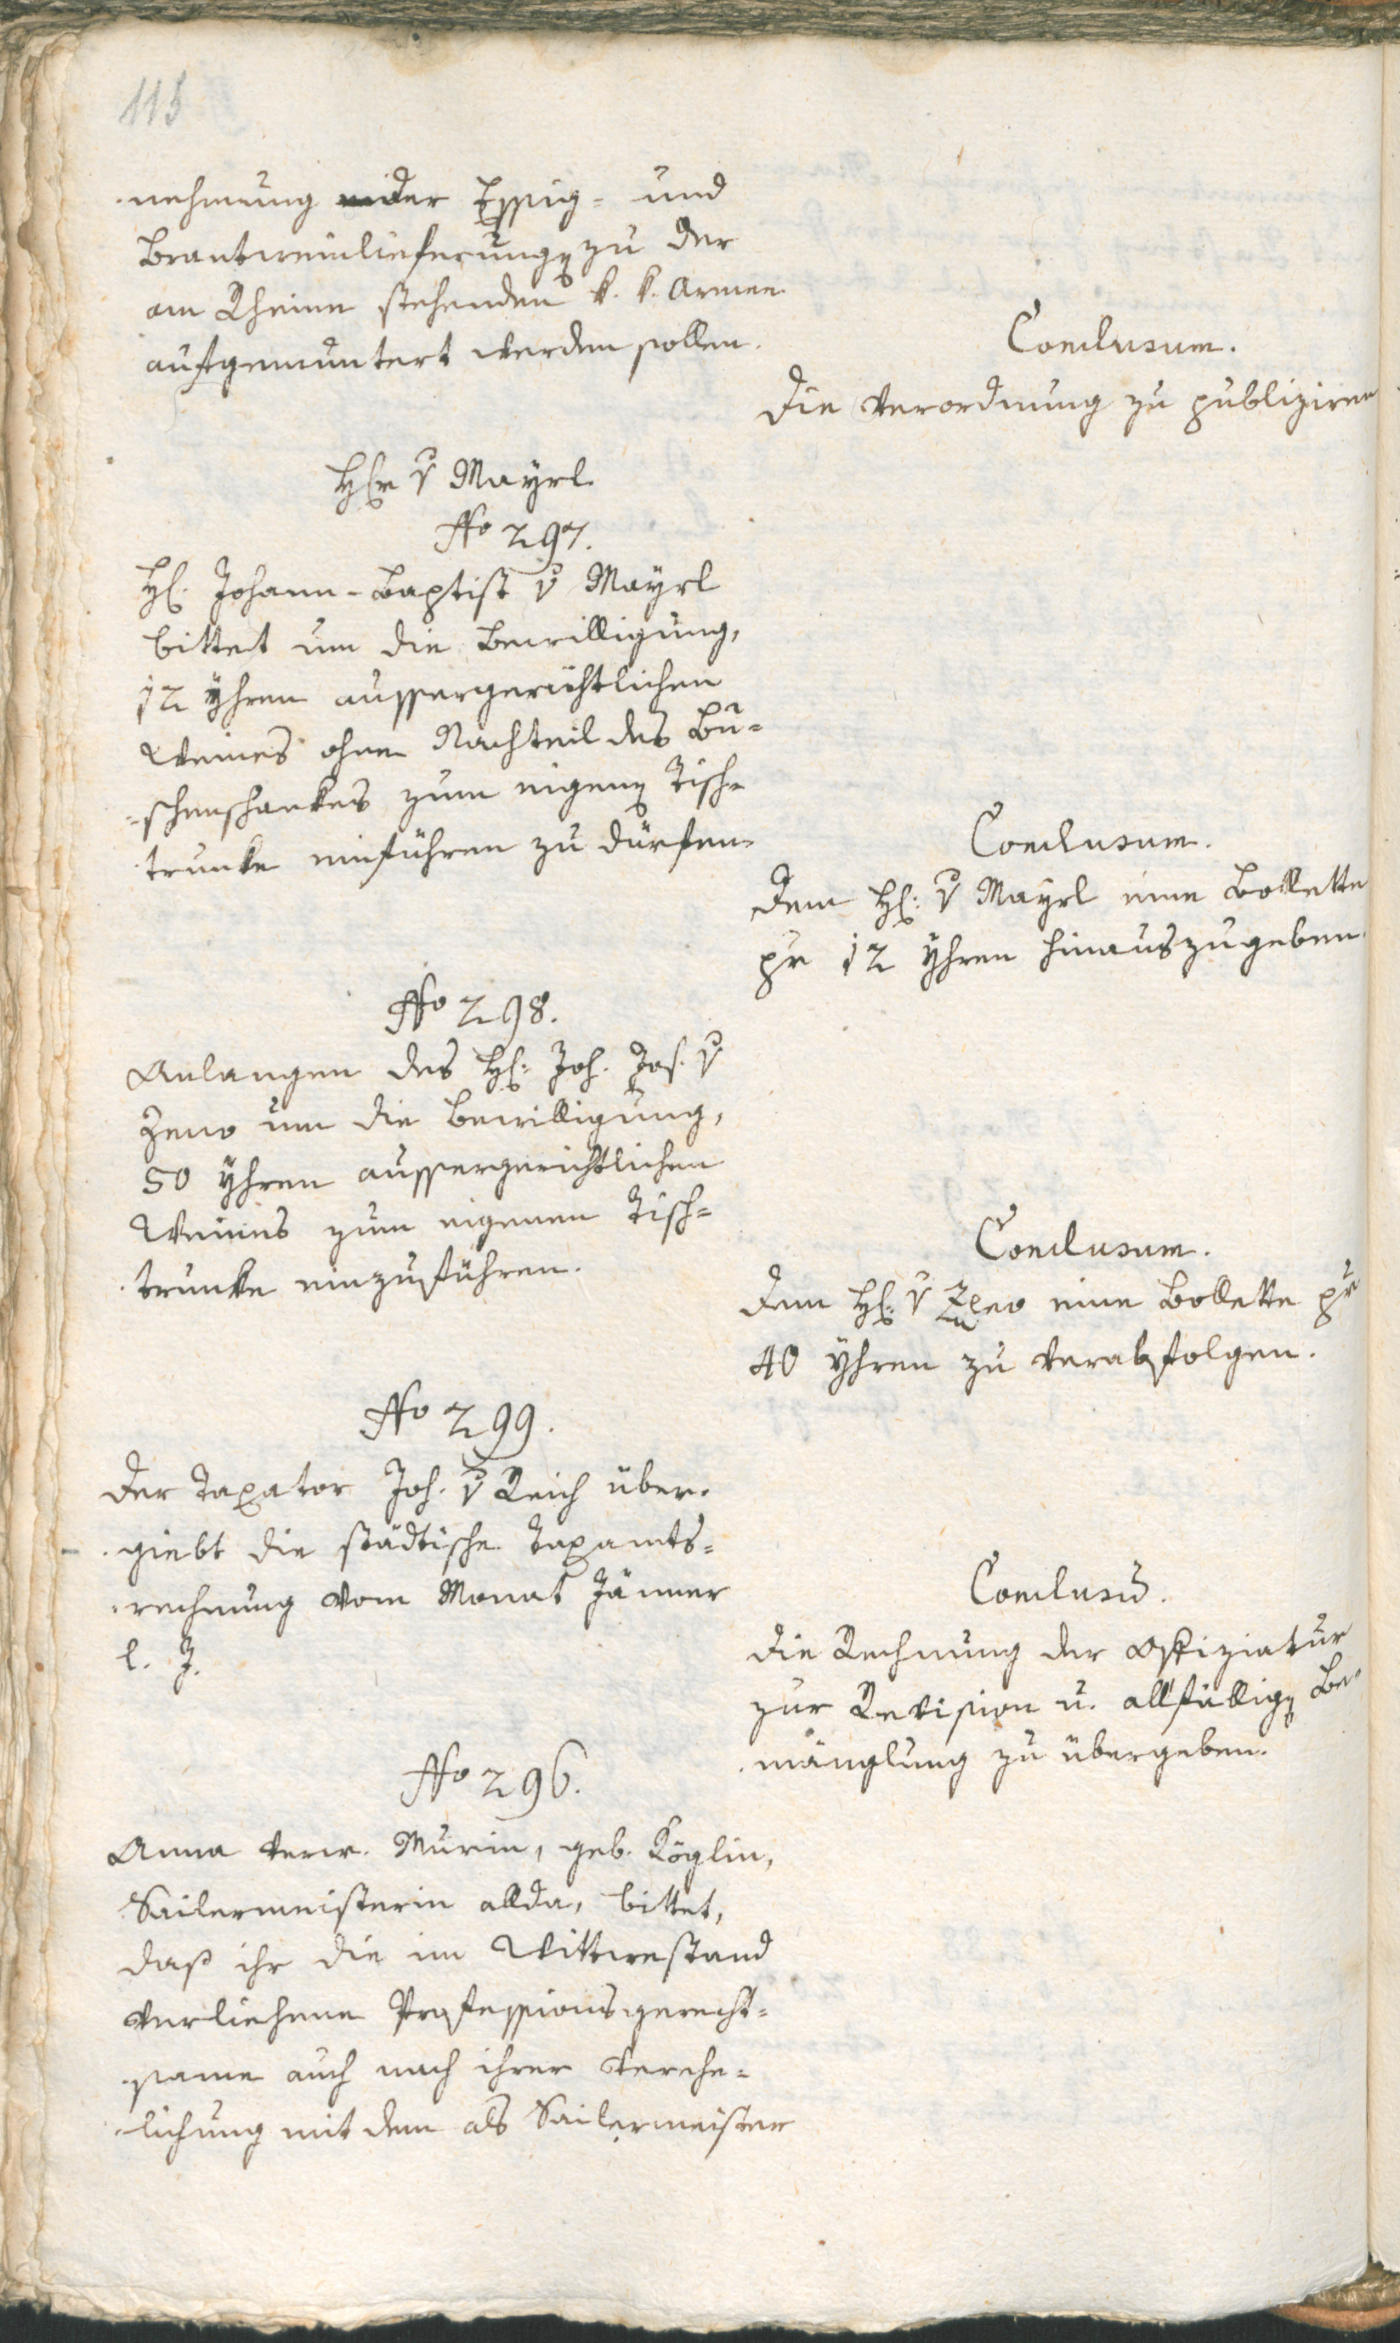 115
nehmung der Essig- und
Brantweinlieferung zu der
am Rheine stehenden k. k. Armee
aufgemuntert werden sollen.
Conclusum.
Die Verordnung zu publiziren
Hr v Mayrl.
No 297.
H: Johann-Baptist v Mayrl
bittet um die Bewilligung,
12 Yhren aussergerichtlichen
Weines ohne Nachteil des Bu-
schenschankes zum eigenen Tisch-
trunke einführen zu dürfen.
Conclusum.
Dem H: v Mayrl eine Bollette
pr 12 Yhren hinauszugeben.
No 298.
Anlangen des H: Joh. Jos. v
Zeno um die Bewilligung,
50 Yhren aussergerichtlichen
Weines zum eigenen Tisch-
trunke einzuführen.
Conclusum.
Dem H: v Zeno eine Bollette pr
40 Yhren zu verabfolgen.
No 299.
Der Taxator Joh. v Reich über-
giebt die städtische Taxamts-
rechnung vom Monat Jänner
l. J.
Conclusū.
Die Rechnung der Offiziatur
zur Revision u. allfälligen Be-
mänglung zu übergeben.
No 296.
Anna verw. Murin, geb. Köglin,
Sailermeisterin allda, bittet,
daß ihr die im Wittwestand
verliehene Professionsgerecht-
same auch nach ihrer Verehe-
lichung mit dem als Sailermeister